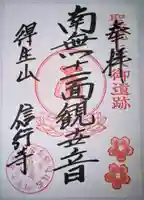 奉拝
聖
御遺跡
南無十一面観世音
得生山
信行寺